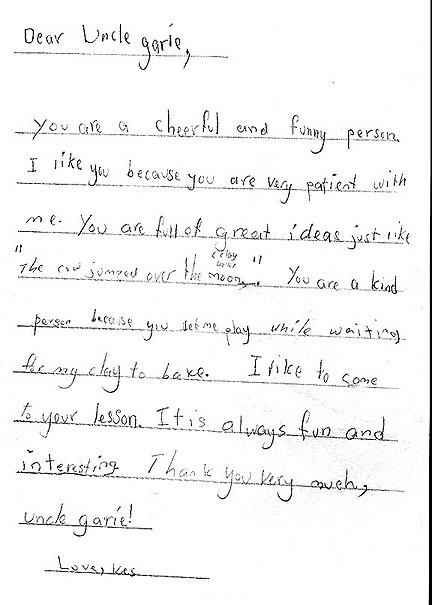 Dear Uncle garie,
You are a cheerful and funny person.
I like you because you are very patient with
me. You are full of great ideas just like
"The cow jumped over the moon,". You are a kind
person because you let me play while waiting
for my clay to bake. I like to come
to your lesson. It is always fun and
interesting. Thank you very much,
uncle garie!
Love, Kes